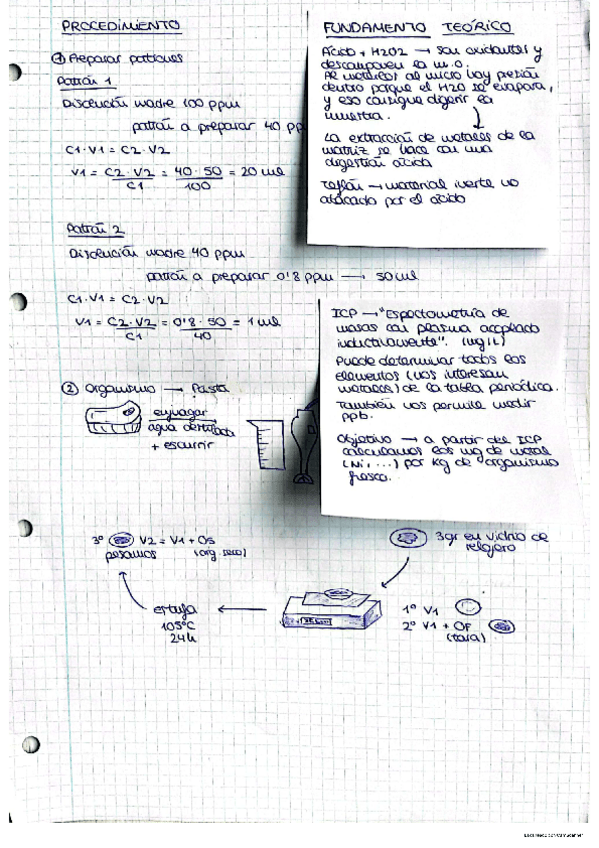 PROCEDIMIENTO
① Preparar patrones
Patrón 1
Disolución madre 100 ppm
patrón a preparar 40 pp
C1·V1 = C2·V2
V1 = C2·V2 / C1 = 40·50 / 100 = 20 ml
Patrón 2
Disolución madre 40 ppm
patrón a preparar 0'8 ppm → 50 ml
C1·V1 = C2·V2
V1 = C2·V2 / C1 = 0'8·50 / 40 = 1 ml
② Organismo → Pasta
enjuagar
agua destilada
+ escurrir
FUNDAMENTO TEÓRICO
Ácido + H2O2 → son oxidantes y
descomponen la m.o.
Al meterlos al micro hay presión
dentro porque el H2O se evapora,
y eso consigue digerir la
muestra.
La extracción de metales de la
matriz se hace con una
digestión ácida
Teflón → material inerte no
atacado por el ácido
ICP → "Espectometría de
masas con plasma acoplado
inductivamente". (mg/L)
Puede determinar todos los
elementos (nos interesan
metales) de la tabla periódica.
También nos permite medir
ppb.
Objetivo → a partir del ICP
calculamos los mg de metal
(Ni, ...) por Kg de organismo
fresco.
3º V2 = V1 + OS
pesamos (org. seco)
3gr en vidrio de
relojero
estufa
105ºC
24h
1º V1
2º V1 + OF
(tara)